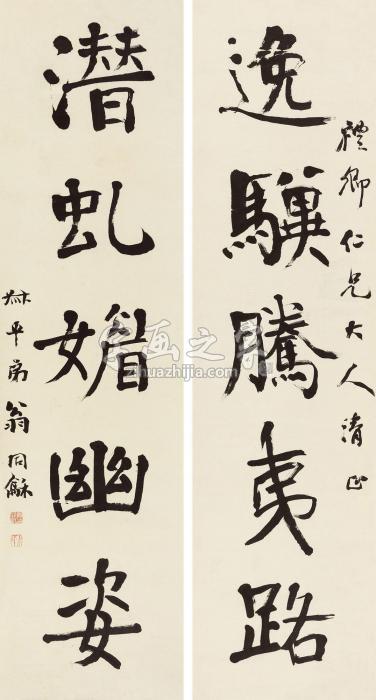 禮卿仁兄大人清正
逸驥騰夷路
潛虬媚幽姿
叔平弟翁同龢
字画之家
zhuazhijia.com